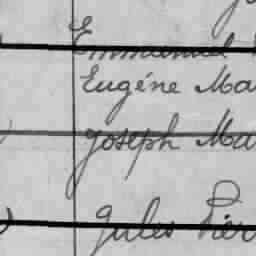 Emmanuel
Eugéne Ma
Joseph Ma
Jules Pier